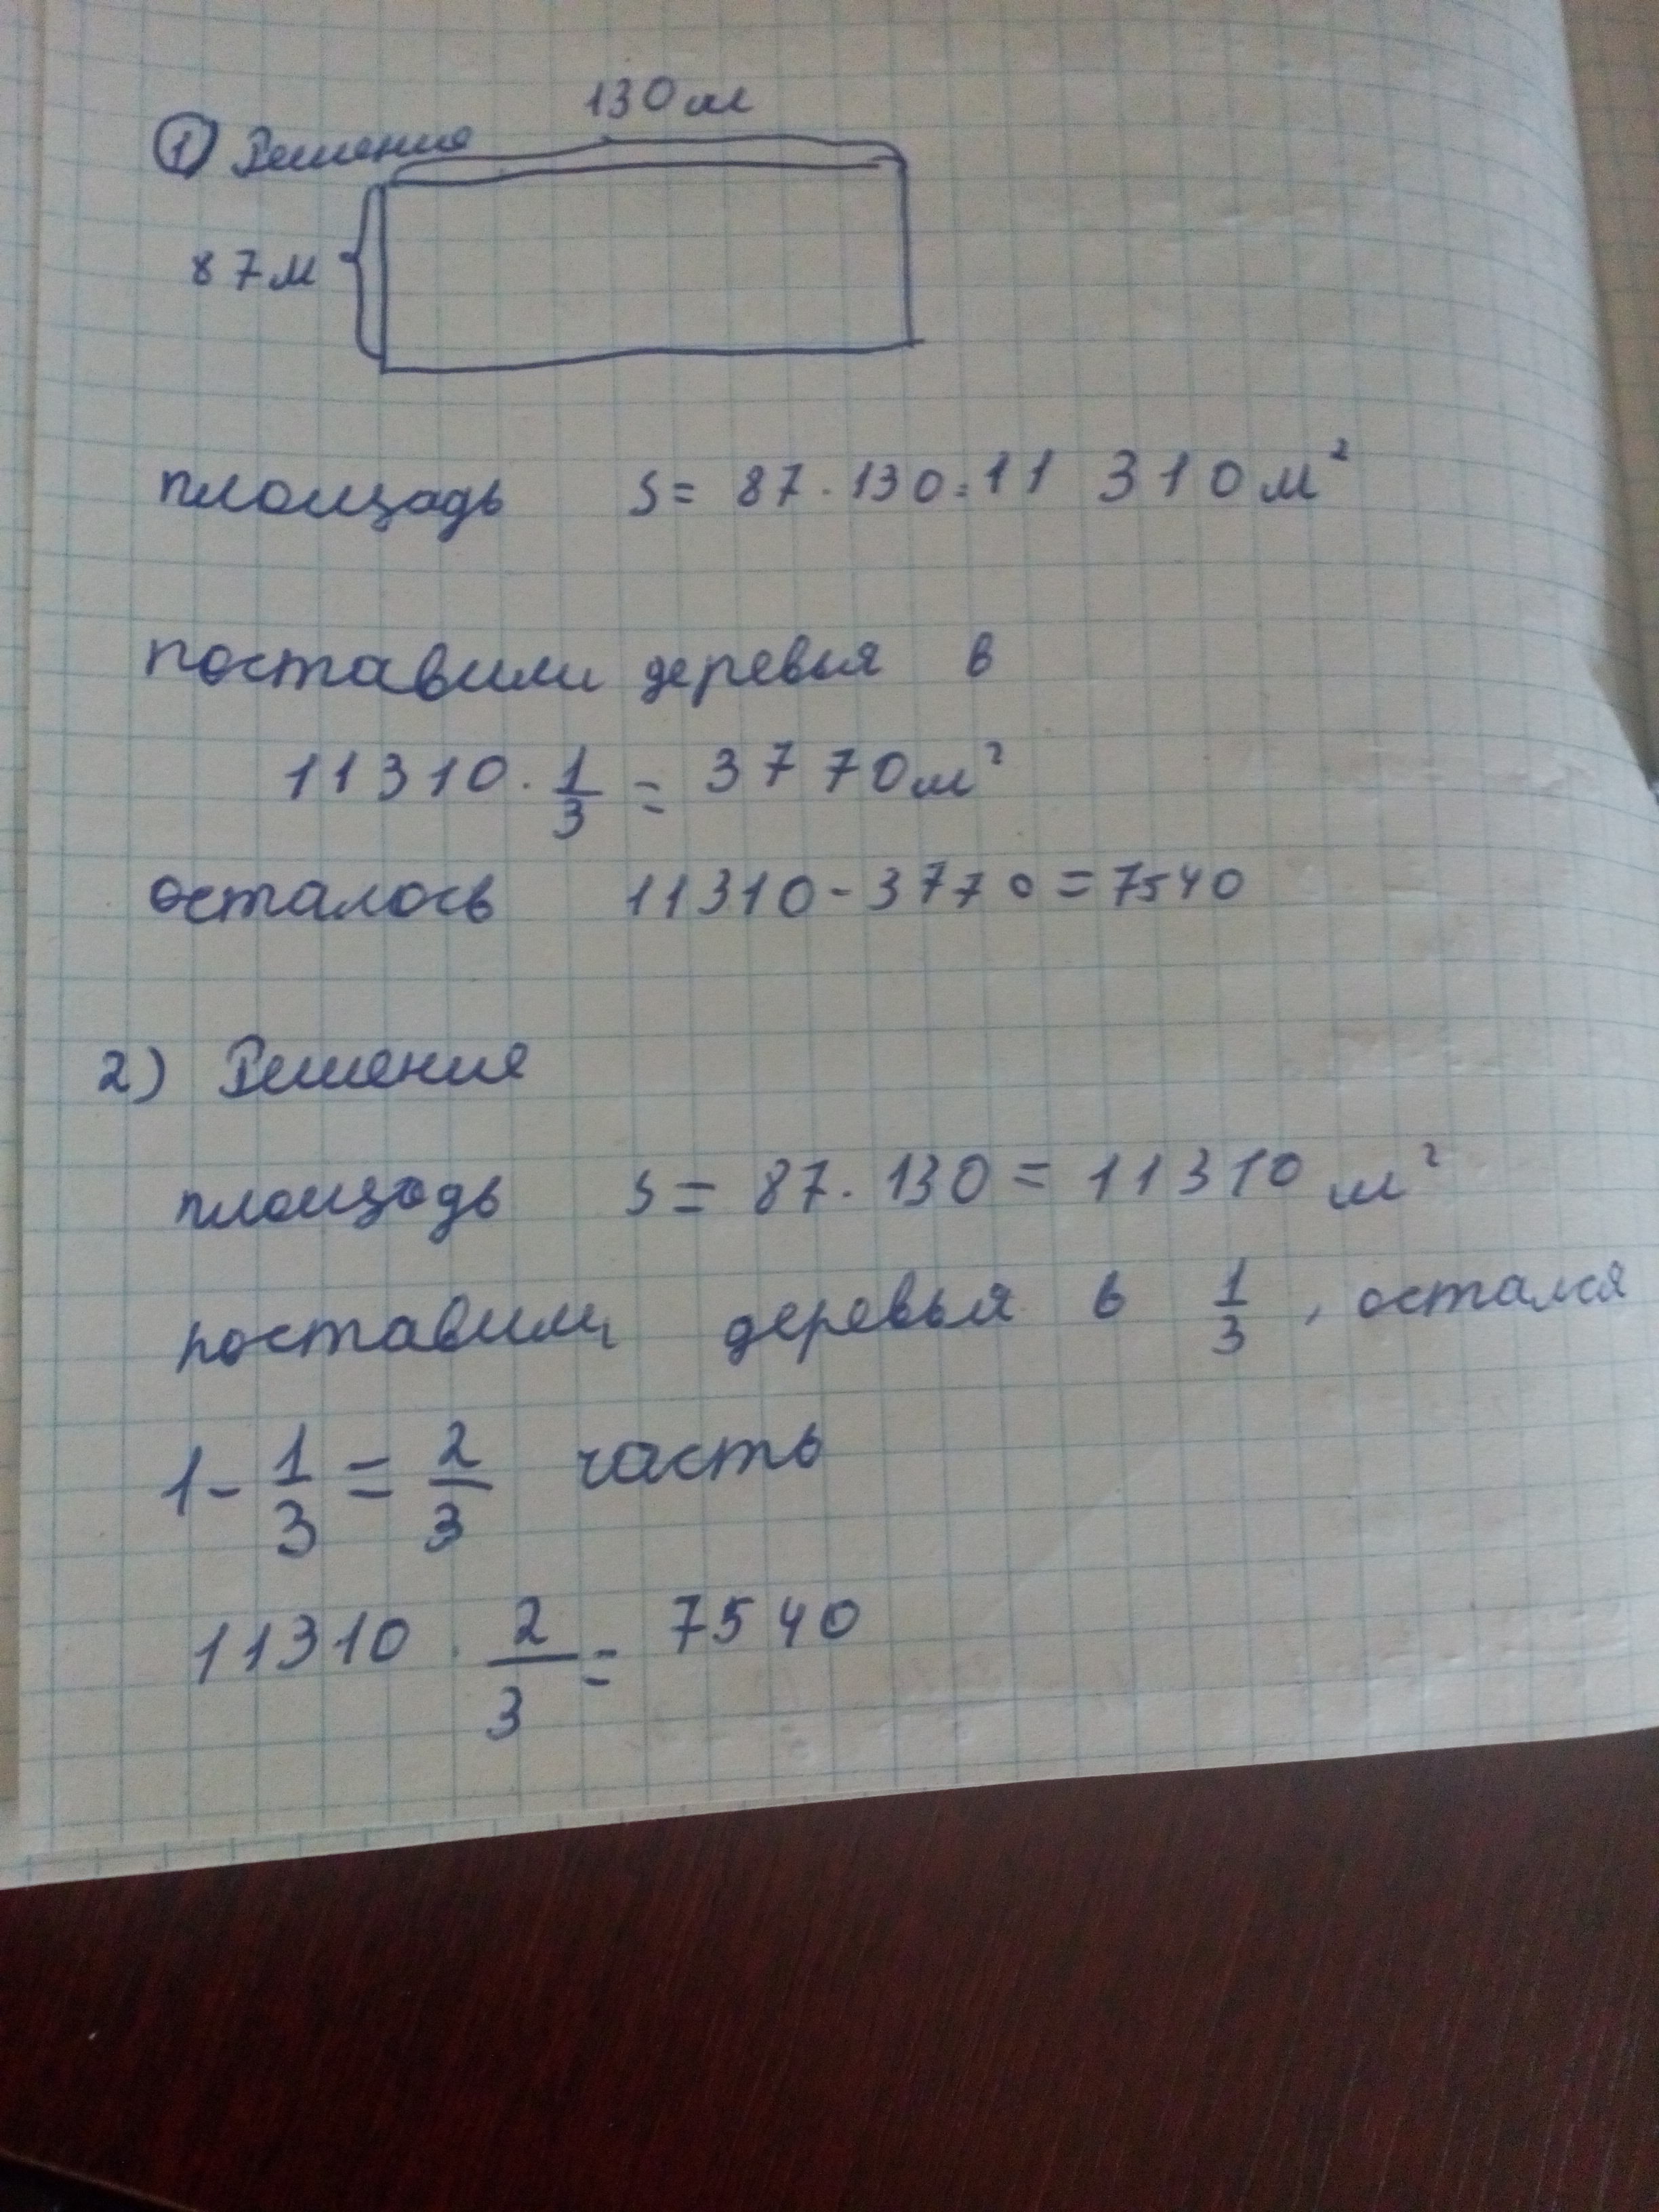 130 м
① Решение
87 м
площадь S = 87 · 130 = 11 310 м²
поставили деревья в
11310 · 1/3 = 3770 м²
осталось 11310 - 3770 = 7540
2) Решение
площадь S = 87 · 130 = 11310 м²
поставили деревья в 1/3, остался
1 - 1/3 = 2/3 часть
11310 · 2/3 = 7540